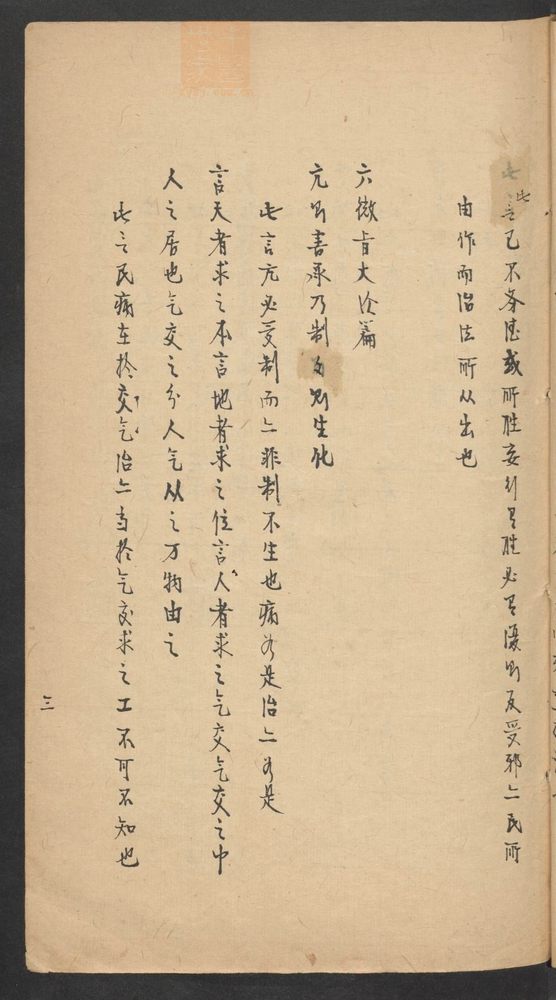 此言己不务德或所胜妄行有胜必有復则反受邪亦民所
由作而治法所从出也
六微旨大论篇
亢则害承乃制制则生化
此言亢必受制而亦非制不生也病如是治亦如是
言天者求之本言地者求之位言人者求之气交气交之中
人之居也气交之分人气从之万物由之
此言民病在於交气治亦当於气交求之工不可不知也
三